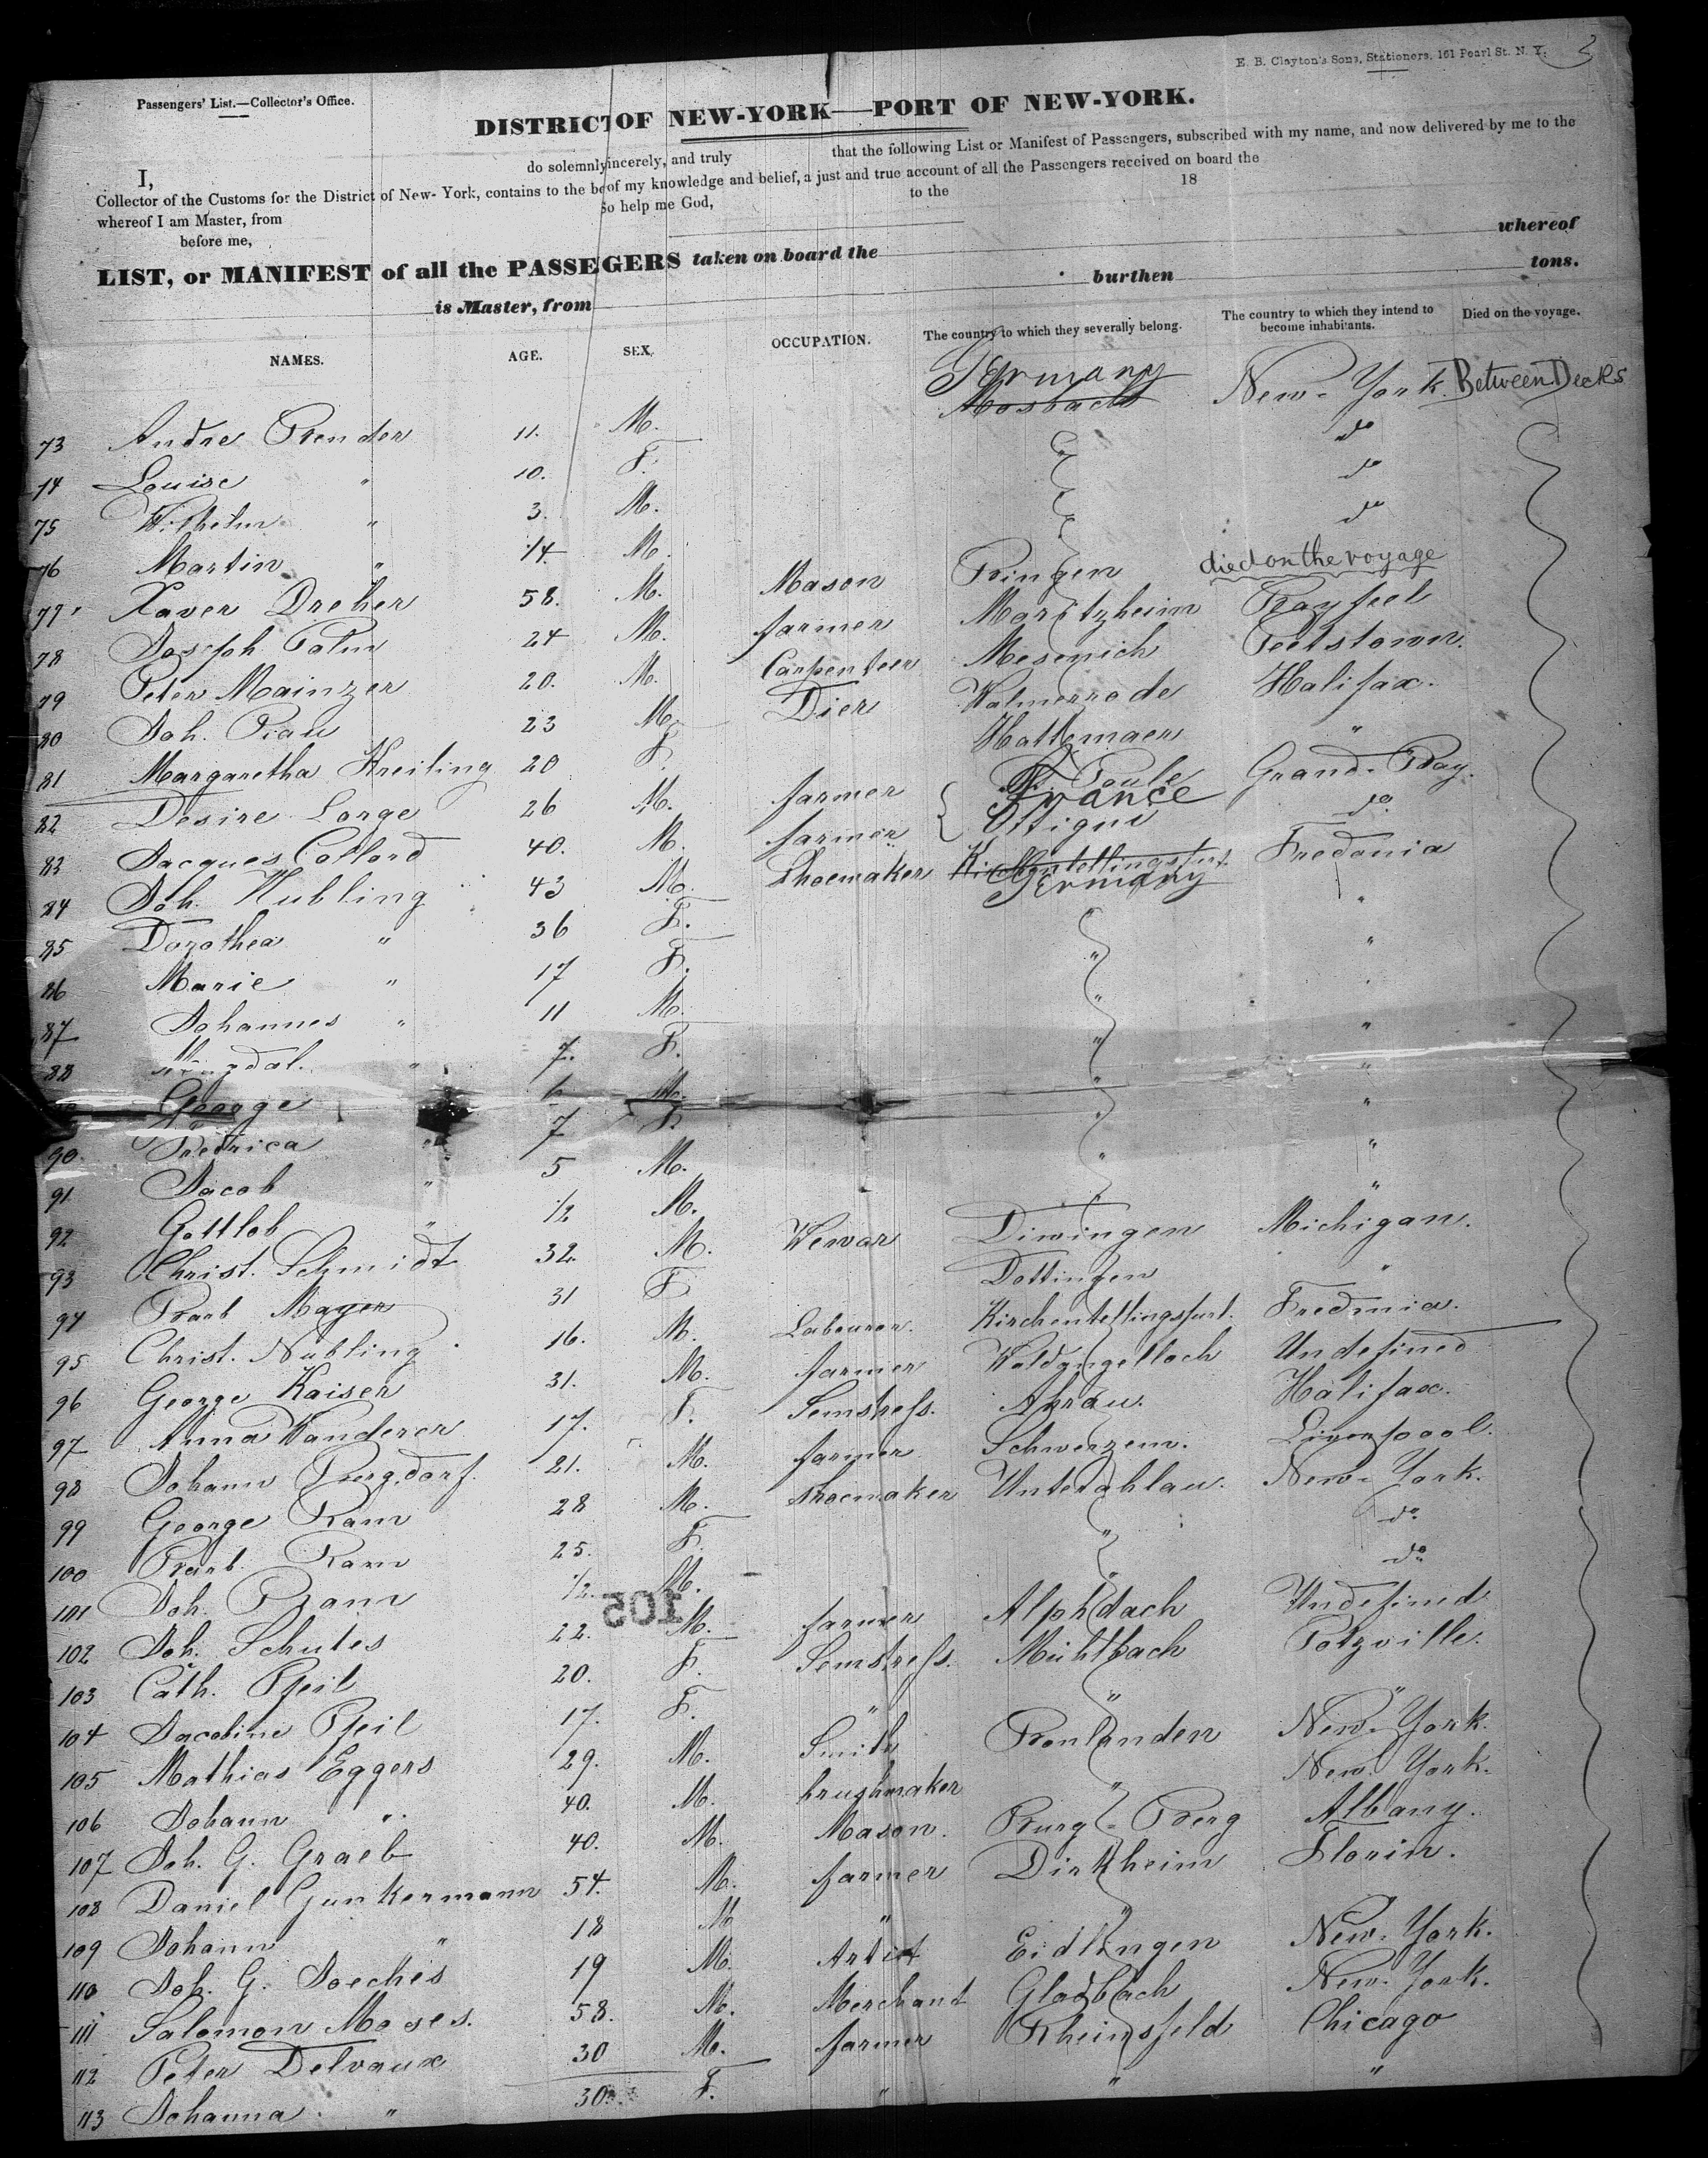 E. B. Clayton's Sons, Stationers, 161 Pearl St. N. Y. 2
Passengers' List.—Collector's Office.
DISTRICT OF NEW-YORK—PORT OF NEW-YORK.
I, do solemnly incerely, and truly that the following List or Manifest of Passengers, subscribed with my name, and now delivered by me to the
Collector of the Customs for the District of New-York, contains to the be of my knowledge and belief, a just and true account of all the Passengers received on board the
whereof I am Master, from So help me God, to the 18
before me,
LIST, or MANIFEST of all the PASSEGERS taken on board the whereof
is Master, from burthen tons.
NAMES. AGE. SEX. OCCUPATION. The country to which they severally belong. The country to which they intend to become inhabitants. Died on the voyage.
Germany
73 Andre Bender 11. M. Mosbach New-York. Between Decks
74 Louise " 10. F. do
75 Wilhelm " 3. M. do
76 Martin " 14. M. do
77 Xaver Dreher 58. M. Mason Bingen died on the voyage
78 Joseph Palm 24 M. farmer Moritzheim Bayfeel
79 Peter Mainzer 20. M. Carpenteer Mesenich Peetstown.
80 Joh. Piau 23 M. Dier Walmerrode Halifax.
81 Margaretha Kreiling 20 F. Hattemaer "
82 Desire Lorge 26 M. farmer France Grand-Bay.
83 Jacques Collard 40. M. farmer Ottigni do
84 Joh. Nubling 43 M. Shoemaker Kirchentellingsfurt Germany Fredonia
85 Dorothea " 36 F. "
86 Marie " 17 F. " "
87 Johannes " 11 M. "
88 Magdal. " 7. F. " "
George 6 M. " "
90. Fredrica " 7 F. " "
91 Jacob " 5 M. " "
92 Gottlob " 1/2 M. "
93 Christ. Schmidt 32. M. Wewar Diwingen Michigan.
94 Barb Mayer 31 F. Dottingen "
95 Christ. Nubling 16. M. Labourer. Kirchentellingsfurt. Fredonia.
96 George Kaiser 31. M. farmer Waldangelloch Undefined
97 Anna Wanderer 17. F. Semstress. Ahrau. Halifax.
98 Johann Burgdorf. 21. M. farmer Schwerzem. Liverpoool.
99 George Bam 28 M. Shoemaker Unterahlau. New-York.
100 Barb. Bam 25. F. " do
101 Joh. Bam 1/2. M. " do
105
102 Joh. Schutes 22. M. farmer Alphdach Undefined
103 Cath. Pfeil 20. F. Semstress. Mühlbach Potzville.
104 Jacobine Pfeil 17. F. " " "
105 Mathias Eggers 29. M. Smith Bonlanden New-York.
106 Johann " 40. M. brushmaker " New York.
107 Joh. G. Graeb 40. M. Mason. Burg-Berg Albany.
108 Daniel Gunkermann 54. M. farmer Dirkheim Florin.
109 Johann " 18 M " "
110 Joh. G. Joeches 19 M. Artist Eidlingen New-York.
111 Salomon Moses. 58. M. Merchant Gladbach New-York.
112 Peter Delvaux 30 M. farmer Rheinsfeld Chicago
113 Johanna " 30. F. " " "